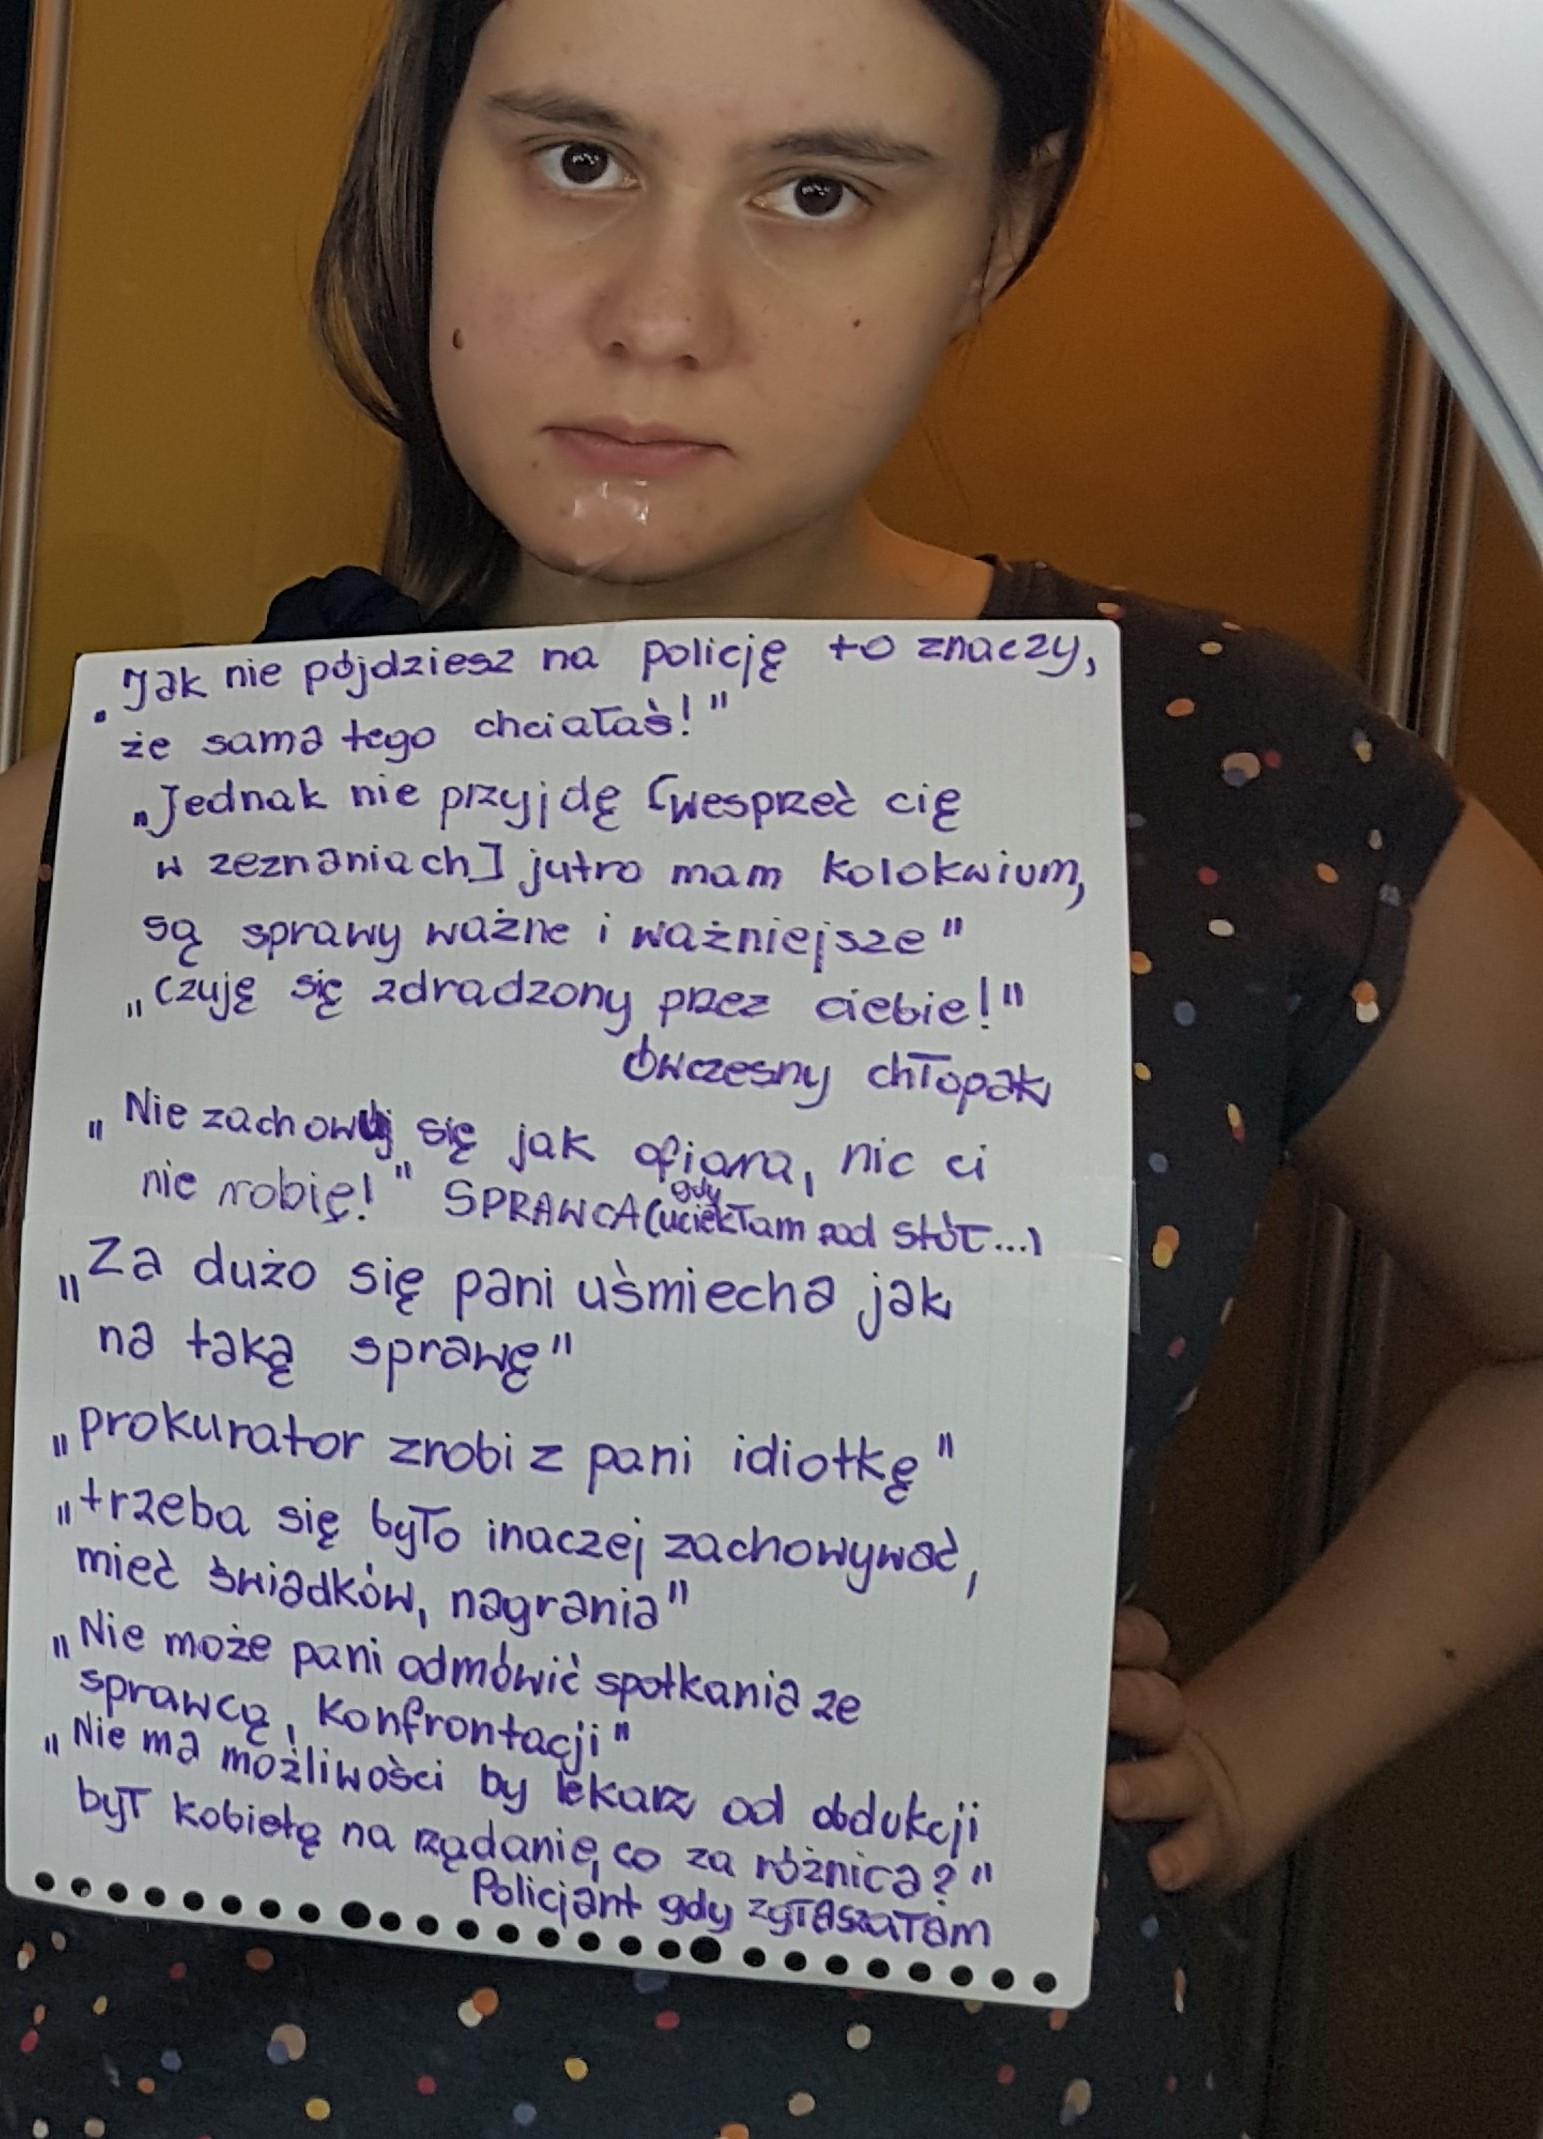 „Jak nie pójdziesz na policję to znaczy,
że sama tego chciałaś!"
„Jednak nie przyjdę [wesprzeć cię
w zeznaniach] jutro mam kolokwium,
są sprawy ważne i ważniejsze"
„Czuję się zdradzony przez ciebie!"
Ówczesny chłopak
„Nie zachowuj się jak ofiara, nic ci
nie robię!" SPRAWCA (gdy uciekłam pod stół...)
„Za dużo się pani uśmiecha jak
na taką sprawę"
„prokurator zrobi z pani idiotkę"
„trzeba się było inaczej zachowywać,
mieć świadków, nagrania"
„Nie może pani odmówić spotkania ze
sprawcą, konfrontacji"
„Nie ma możliwości by lekarz od obdukcji
był kobietą na rządanie, co za różnica?"
Policjant gdy zgłaszałam